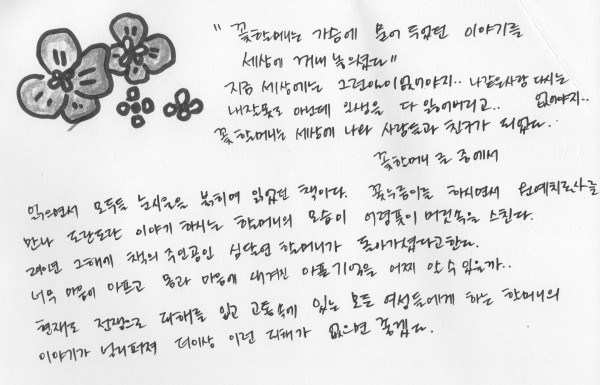 " 꽃할머니는 가슴에 묻어 두었던 이야기를
세상에 꺼내 놓으셨다"
지금 세상에는 그런일이없어야지.. 나같은사람 다시는
내잘못도 아닌데 인생을 다 잃어버리고.. 없어야지..
꽃 할머니는 세상에 나와 사람들과 친구가 되었다.
꽃할머니 글 중에서
읽으면서 모두들 눈시울을 붉히며 읽었던 책이다. 꽃누름이를 하시면서 원예치료사를
만나 도란도란 이야기 하시는 할머니의 모습이 머릿속을 스친다.
2010년 그해에 책의 주인공인 심달연 할머니가 돌아가셨다고한다.
너무 마음이 아프고 몸과 마음에 새겨진 아픈기억을 어찌 안 수 있을까..
현재도 전쟁으로 피해를 입고 고통속에 있는 모든 여성들에게 하는 할머니의
이야기가 널리퍼져 더이상 이런 피해가 없으면 좋겠다.